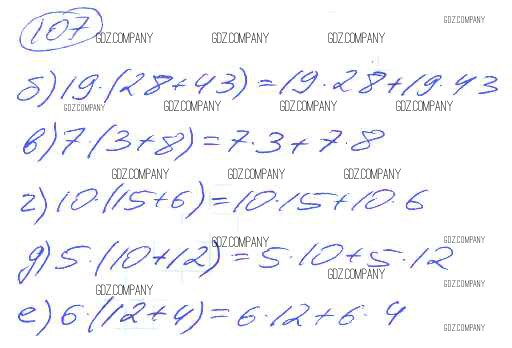 107
GDZ.COMPANY
GDZ.COMPANY GDZ.COMPANY GDZ.COMPANY
б) 19·(28+43)=19·28+19·43
GDZ.COMPANY GDZ.COMPANY GDZ.COMPANY GDZ.COMPANY
в) 7·(3+8)=7·3+7·8
GDZ.COMPANY GDZ.COMPANY GDZ.COMPANY
г) 10·(15+6)=10·15+10·6
GDZ.COMPANY GDZ.COMPANY
д) 5·(10+12)=5·10+5·12
GDZ.COMPANY
GDZ.COMPANY GDZ.COMPANY
е) 6·(12+4)=6·12+6·4
GDZ.COMPANY